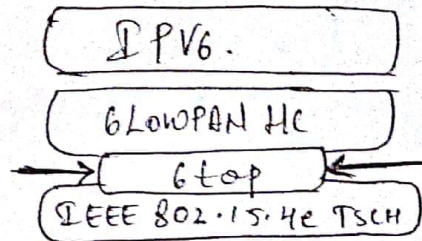 IPV6.
6LOWPAN HC
6top
IEEE 802.15.4e TSCH